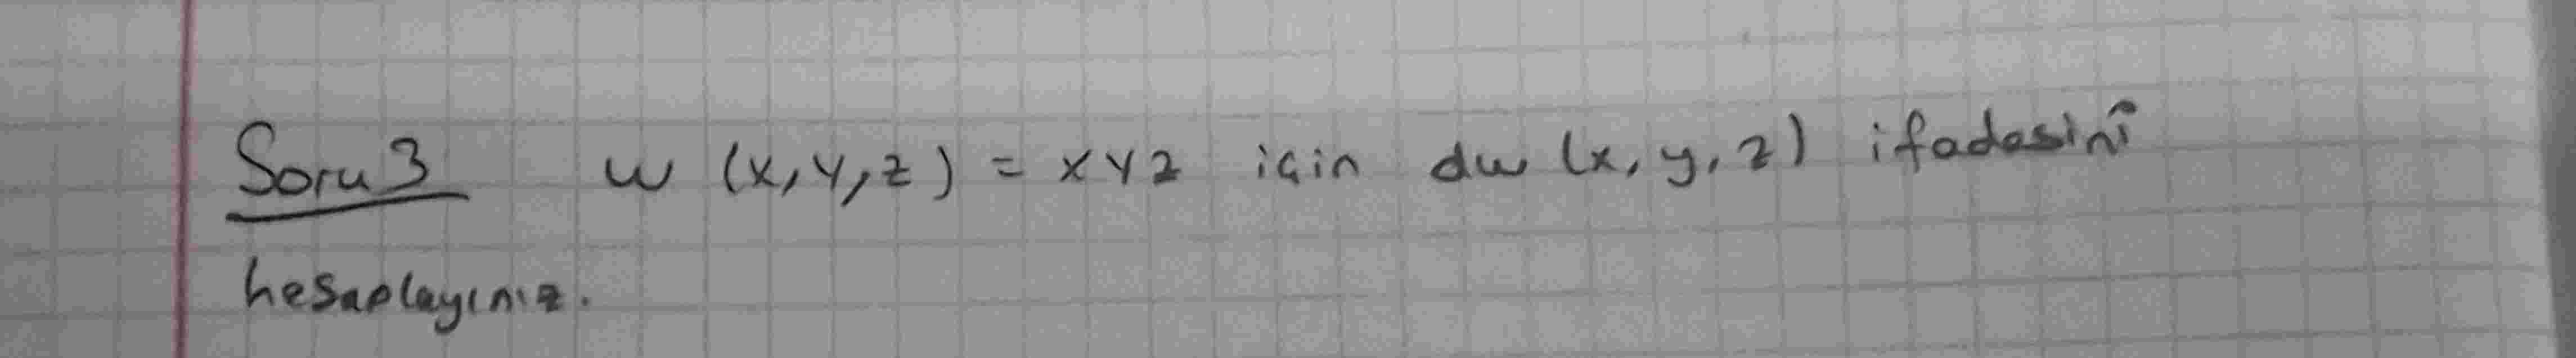 Soru 3 w (x, y, z) = xyz için dw (x, y, z) ifadesini
hesaplayınız.